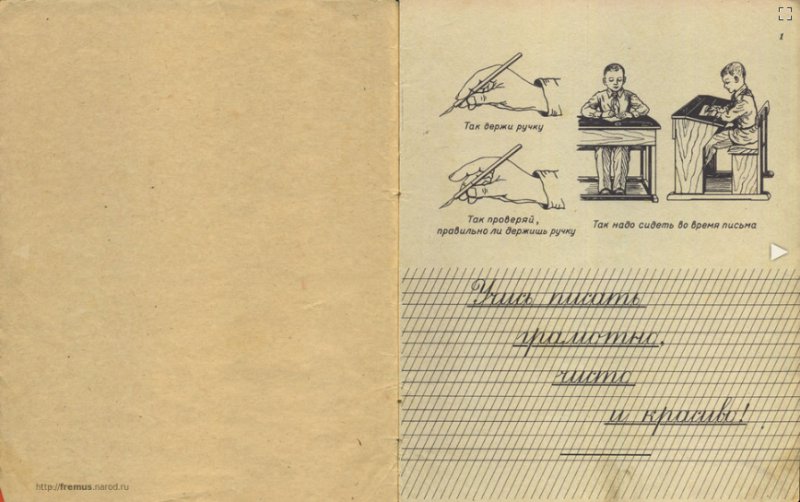 1
Так держи ручку
Так проверяй,
правильно ли держишь ручку
Так надо сидеть во время письма
Учись писать
грамотно,
чисто
и красиво!
http://fremus.narod.ru